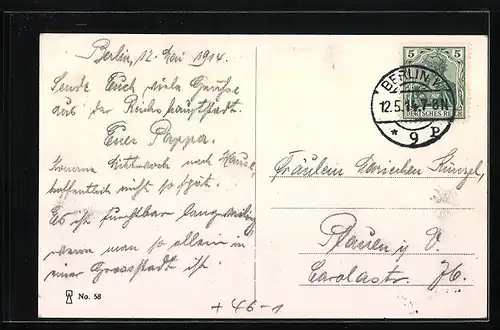 Berlin, 12. Mai 1914.
Sende Euch viele Grüsse
aus der Reichshauptstadt.
Euer Pappa.
Komme Mittwoch nach Hause,
hoffentlich nicht so spät.
Es ist furchtbar langweilig
wenn man so allein in
einer Grossstadt ist.
No. 58
5 5
DEUTSCHES REICH
BERLIN W.
12.5.14.7-8N.
* 9 P
Fräulein Dorichen Künzel,
Plauen i/ V.
Carolastr. 76.
+ 46-1